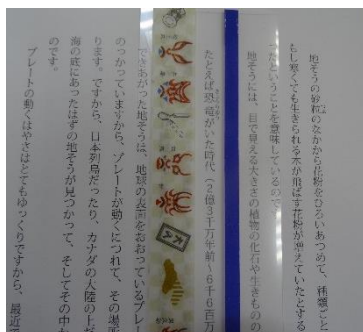 地そうの砂粒のなかから花粉をひろいあつめて、種類ごと
もし寒くても生きられる木が飛ばす花粉が増えていたとする
ったということを意味しているので
地そうには、目で見える大きさの植物の化石や生きもの
たとえば恐竜がいた時代(2億3千万年前~6千6百万
できあがった地そうは、地球の表面をおおっているプレー
のっかっていますから、プレートが動くにつれて、その場所
ります。ですから、日本列島だったり、カナダの大陸の上
海の底にあったはずの地そうが見つかって、そしてその中
のです。
プレートの動くはやさはとてもゆっくりですから、最近